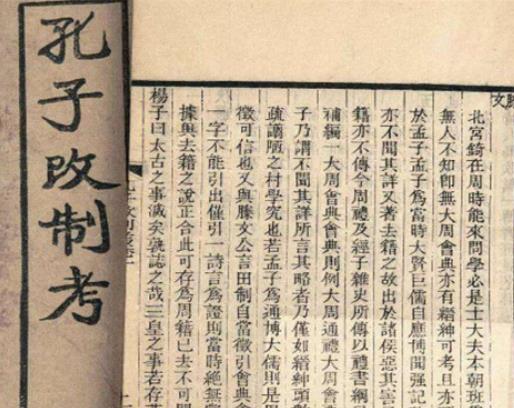 孔子改制考
北宮錡在周時能來問學必是士大夫本朝班
無人不知卽無大周會典亦有縉紳可考且亦
於孟子孟子爲當時大賢巨儒自應博聞强記
亦不聞其詳又著去籍之故出於諸侯惡其害
籍亦不傳今周禮及經子雜史所傳以禮書綱
補編一大周會典會典則例大周通禮大周會
子乃謂不聞其詳所言其略者乃僅如縉紳頭數
疏謭陋之村學究也若孟子爲通博大儒則是周
徵可信也又與滕文公言田制自當徵引會典會
一字不能引出僅引一詩言爲證則當時絶無
據與去籍之說正合此可存爲周籍已去不可
楊子曰太古之事滅矣孰誌之哉三皇之事若存